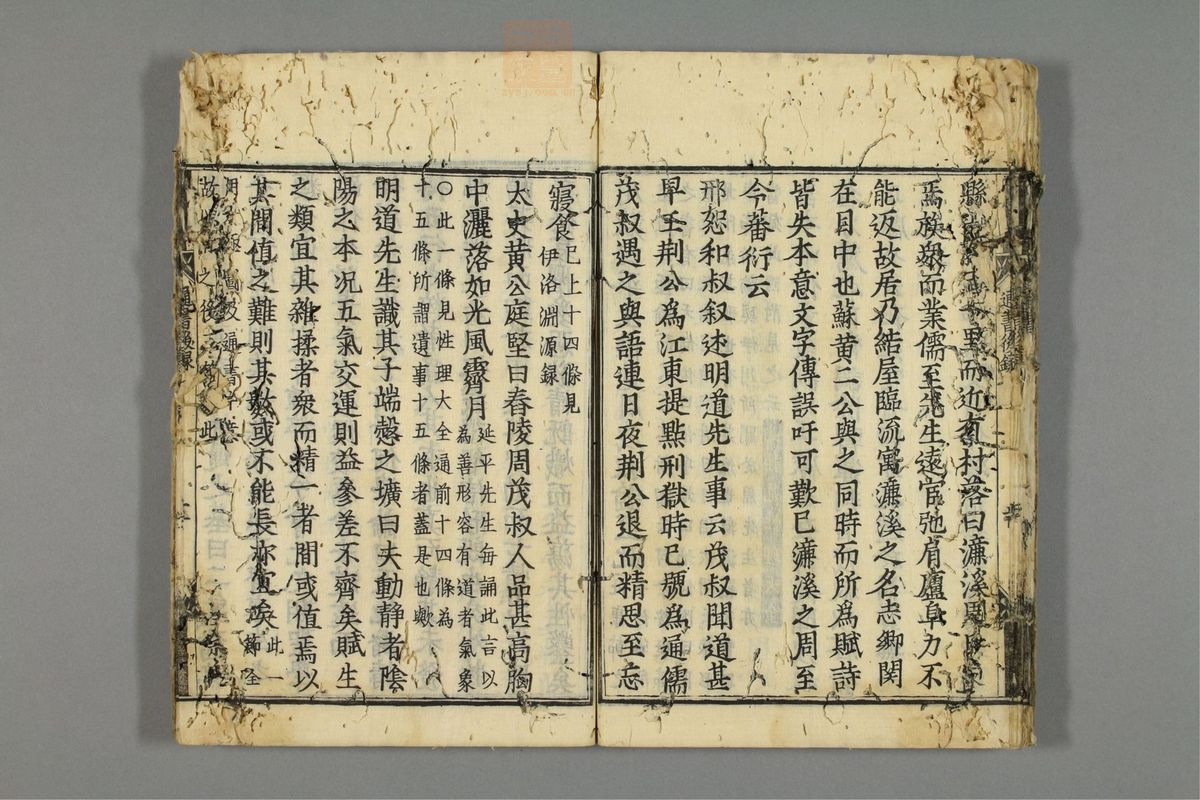 縣 里而近有村落曰濂溪周
焉族衆而業儒至先生遠宦弛肩廬阜力不
能返故居乃結屋臨流寓濂溪之名志鄉関
在目中也蘇黃二公與之同時而所爲賦詩
皆失本意文字傳誤吁可歎已濂溪之周至
今蕃衍云
邢恕和叔叙述明道先生事云茂叔聞道甚
早王荆公爲江東提點刑獄時已號爲通儒
茂叔遇之與語連日夜荆公退而精思至忘
寢食
已上十四條見
伊洛淵源録
太史黃公庭堅曰舂陵周茂叔人品甚高胸
中灑落如光風霽月
延平先生每誦此言以
為善形容有道者氣象
○此一條見性理大全通前十四條為
十五條所謂遺事十五條者蓋是也歟
明道先生識其子端慤之壙曰夫動静者陰
陽之本况五氣交運則益參差不齊矣賦生
之類宜其雜揉者衆而精一者間或值焉以
其間值之難則其數或不能長亦宜矣
此一
節全
用 通書
故 之後 此